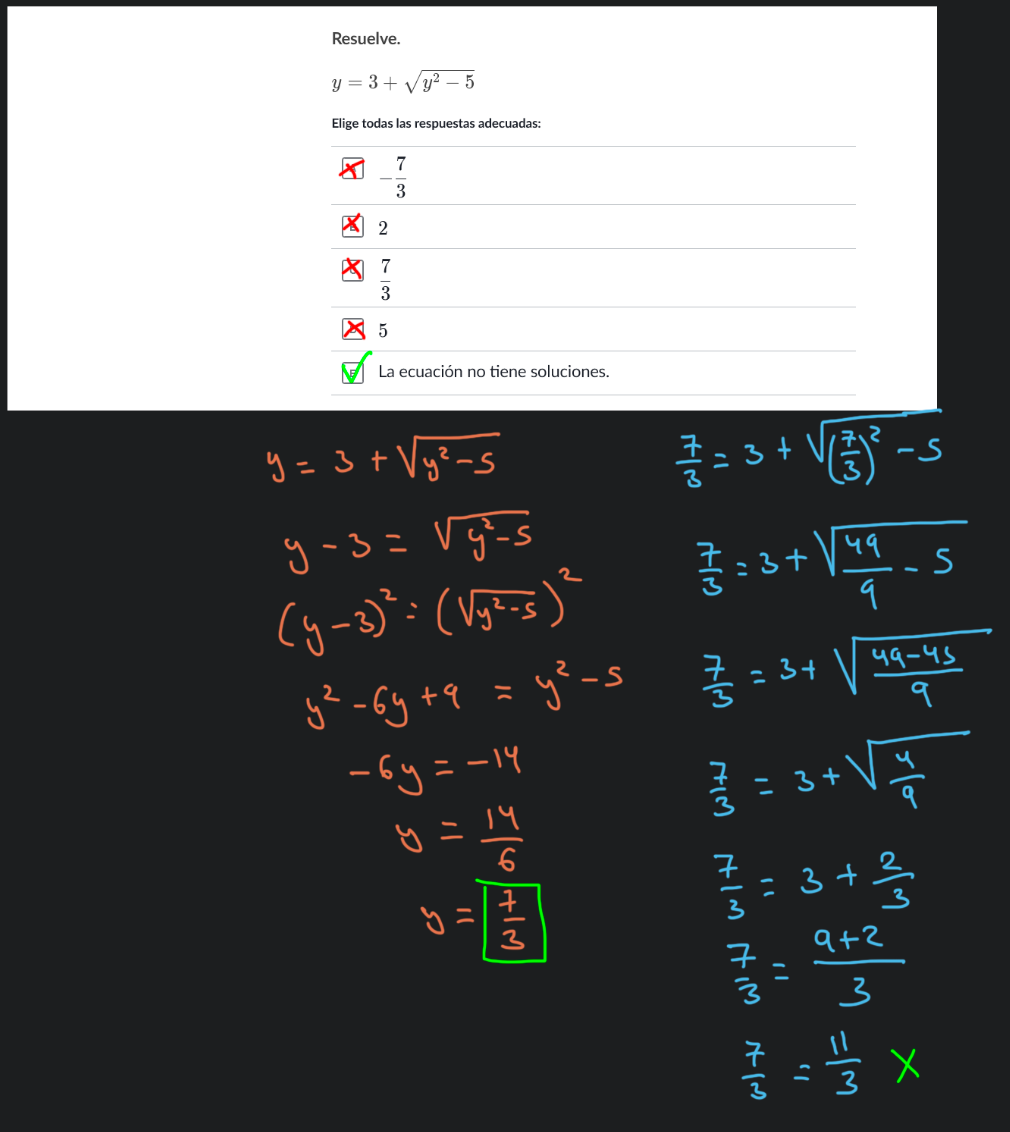 Resuelve.
y = 3 + √(y² − 5)
Elige todas las respuestas adecuadas:
−7/3
2
7/3
5
La ecuación no tiene soluciones.
y = 3 + √(y² − 5)
y − 3 = √(y² − 5)
(y − 3)² = (√(y² − 5))²
y² − 6y + 9 = y² − 5
−6y = −14
y = 14/6
y = 7/3
7/3 = 3 + √((7/3)² − 5)
7/3 = 3 + √(49/9 − 5)
7/3 = 3 + √((49 − 45)/9)
7/3 = 3 + √(4/9)
7/3 = 3 + 2/3
7/3 = (9 + 2)/3
7/3 = 11/3 X